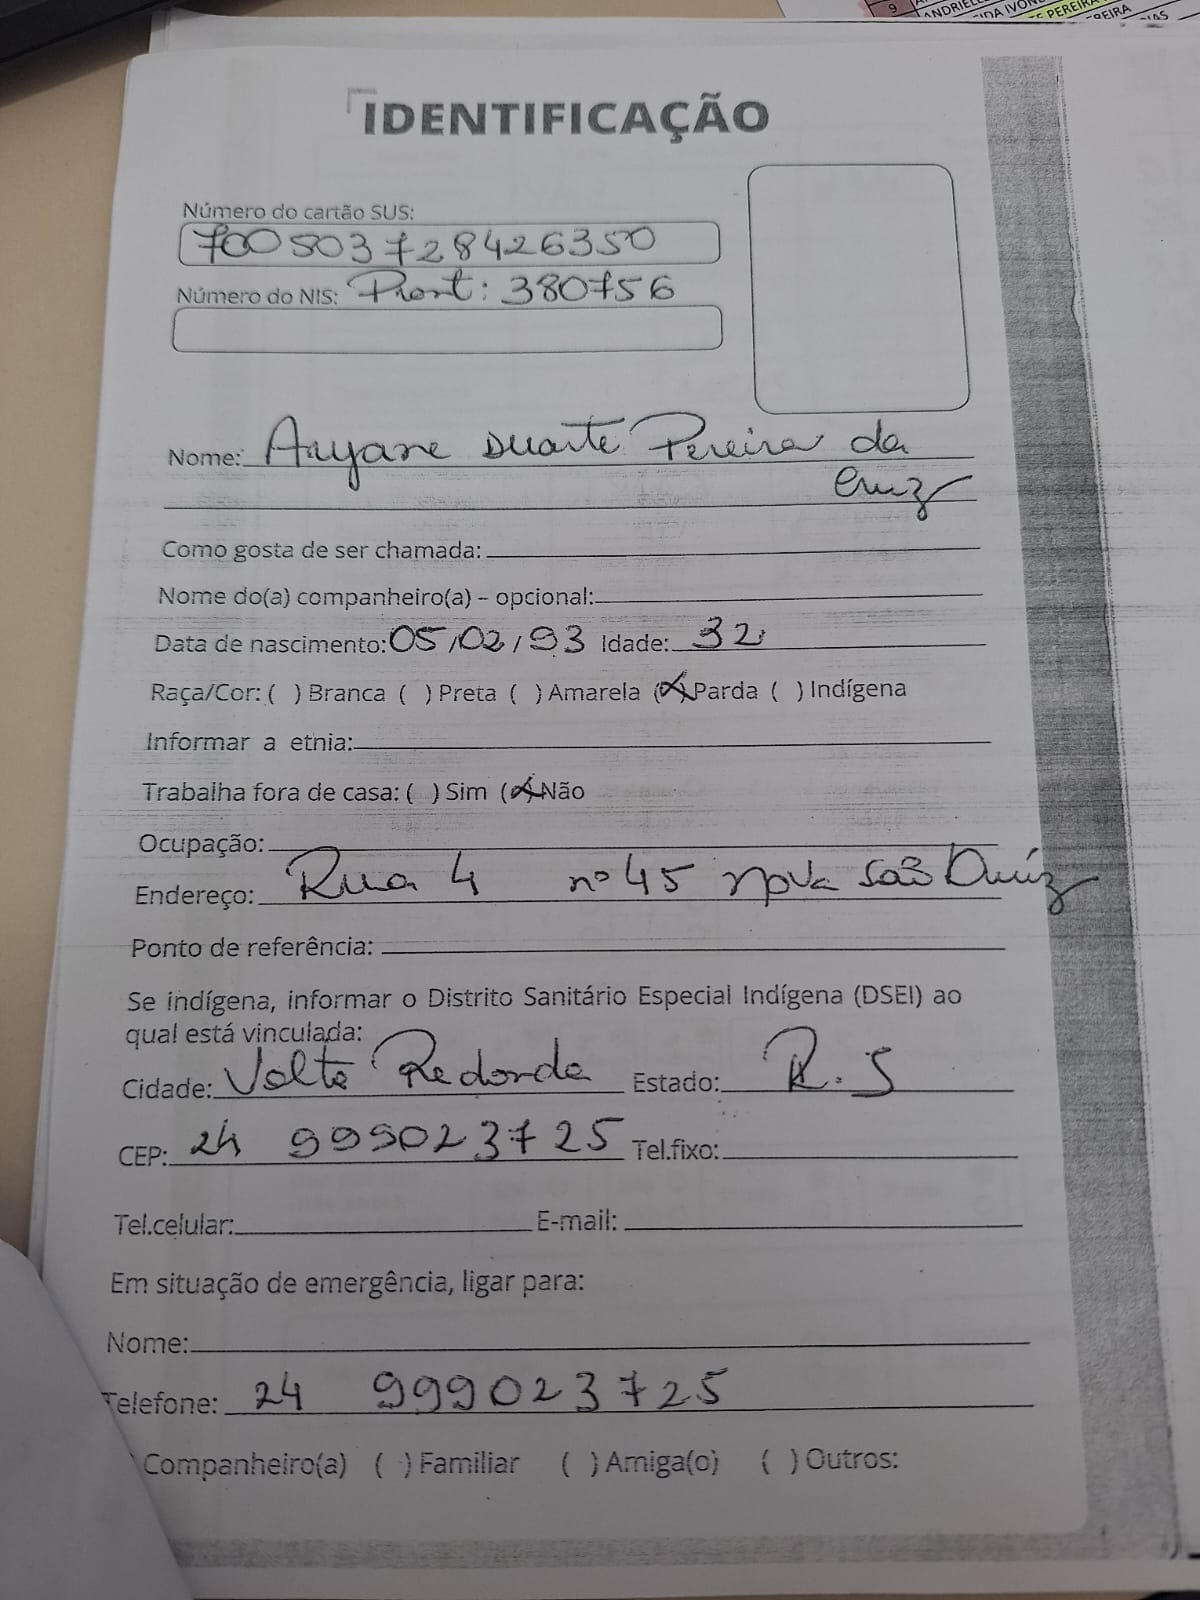 9
ANDRIELL
IDA IVON
PEREIRA
REIRA
IDENTIFICAÇÃO
Número do cartão SUS:
700503728426350
Número do NIS: Pront: 380756
Nome: Aryane Duarte Pereira da
Cruz
Como gosta de ser chamada:
Nome do(a) companheiro(a) – opcional:
Data de nascimento: 05/02/93 Idade: 32
Raça/Cor: ( ) Branca ( ) Preta ( ) Amarela (X) Parda ( ) Indígena
Informar a etnia:
Trabalha fora de casa: ( ) Sim (X) Não
Ocupação:
Endereço: Rua 4 nº 45 Nova São Luíz
Ponto de referência:
Se indígena, informar o Distrito Sanitário Especial Indígena (DSEI) ao
qual está vinculada:
Cidade: Volta Redonda Estado: R.J
CEP: 24 999023725 Tel.fixo:
Tel.celular: E-mail:
Em situação de emergência, ligar para:
Nome:
Telefone: 24 999023725
) Companheiro(a) ( ) Familiar ( ) Amiga(o) ( ) Outros: